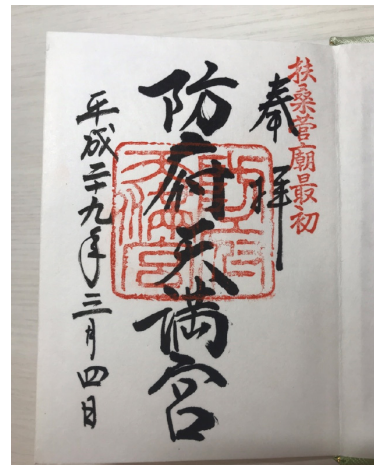 扶桑菅廟最初
奉拝
防府天満宮
平成二十九年三月四日